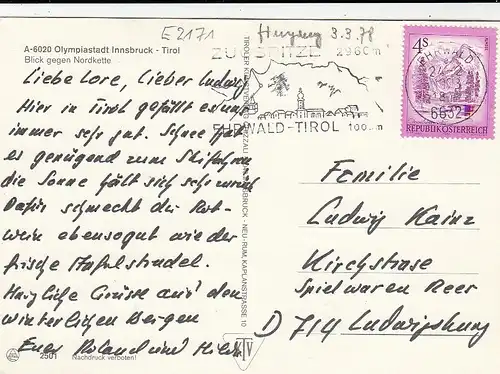 E2171
3.3.78
A-6020 Olympiastadt Innsbruck - Tirol
Blick gegen Nordkette
ZUGSPITZE 2960m
EHRWALD-TIROL 1000m
EHRWALD
6632
4S
REPUBLIK ÖSTERREICH
Liebe Lore, Lieber Ludwig
Hier in Tirol gefällt es uns
immer sehr gut. Schnee
es genügend zum Skifahren
die Sonne hält sich sehr
Dafür schmeckt der Rot-
wein ebensogut wie der
frische Apfelstrudel.
Herzliche Grüsse aus den
winterlichen Bergen
Euer Roland und
Familie
Ludwig Kainz
Kirchstrase
Spielwaren Heer
D 714 Ludwigsburg
INNSBRUCK - NEU-RUM, KAPLANSTRASSE 10
KTV
2501 Nachdruck verboten!